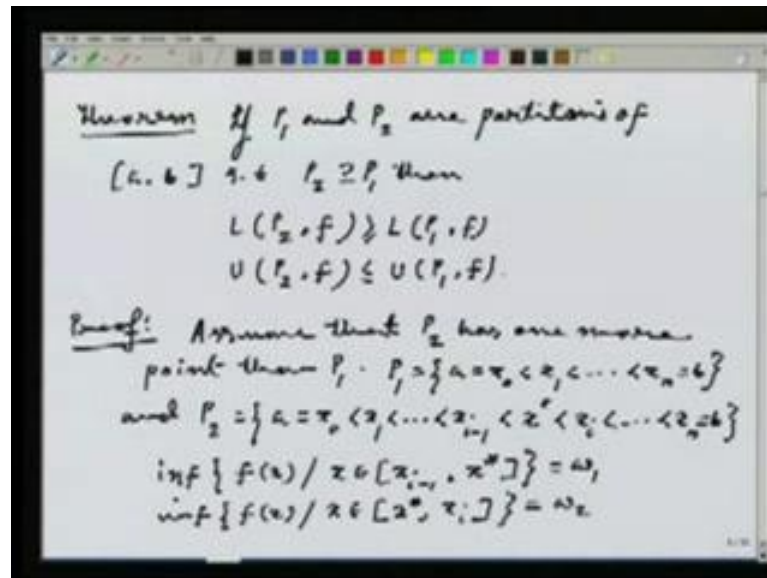 Theorem If P₁ and P₂ are partitions of
[a, b] s.t P₂ ⊇ P₁ then
L(P₂, f) ≥ L(P₁, f)
U(P₂, f) ≤ U(P₁, f).
Proof: Assume that P₂ has one more
point than P₁. P₁ = {a = x₀ < x₁ < ... < xₙ = b}
and P₂ = {a = x₀ < x₁ < ... < xᵢ₋₁ < x* < xᵢ < ... < xₙ = b}
inf { f(x) / x ∈ [xᵢ₋₁, x*] } = ω₁
inf { f(x) / x ∈ [x*, xᵢ] } = ω₂